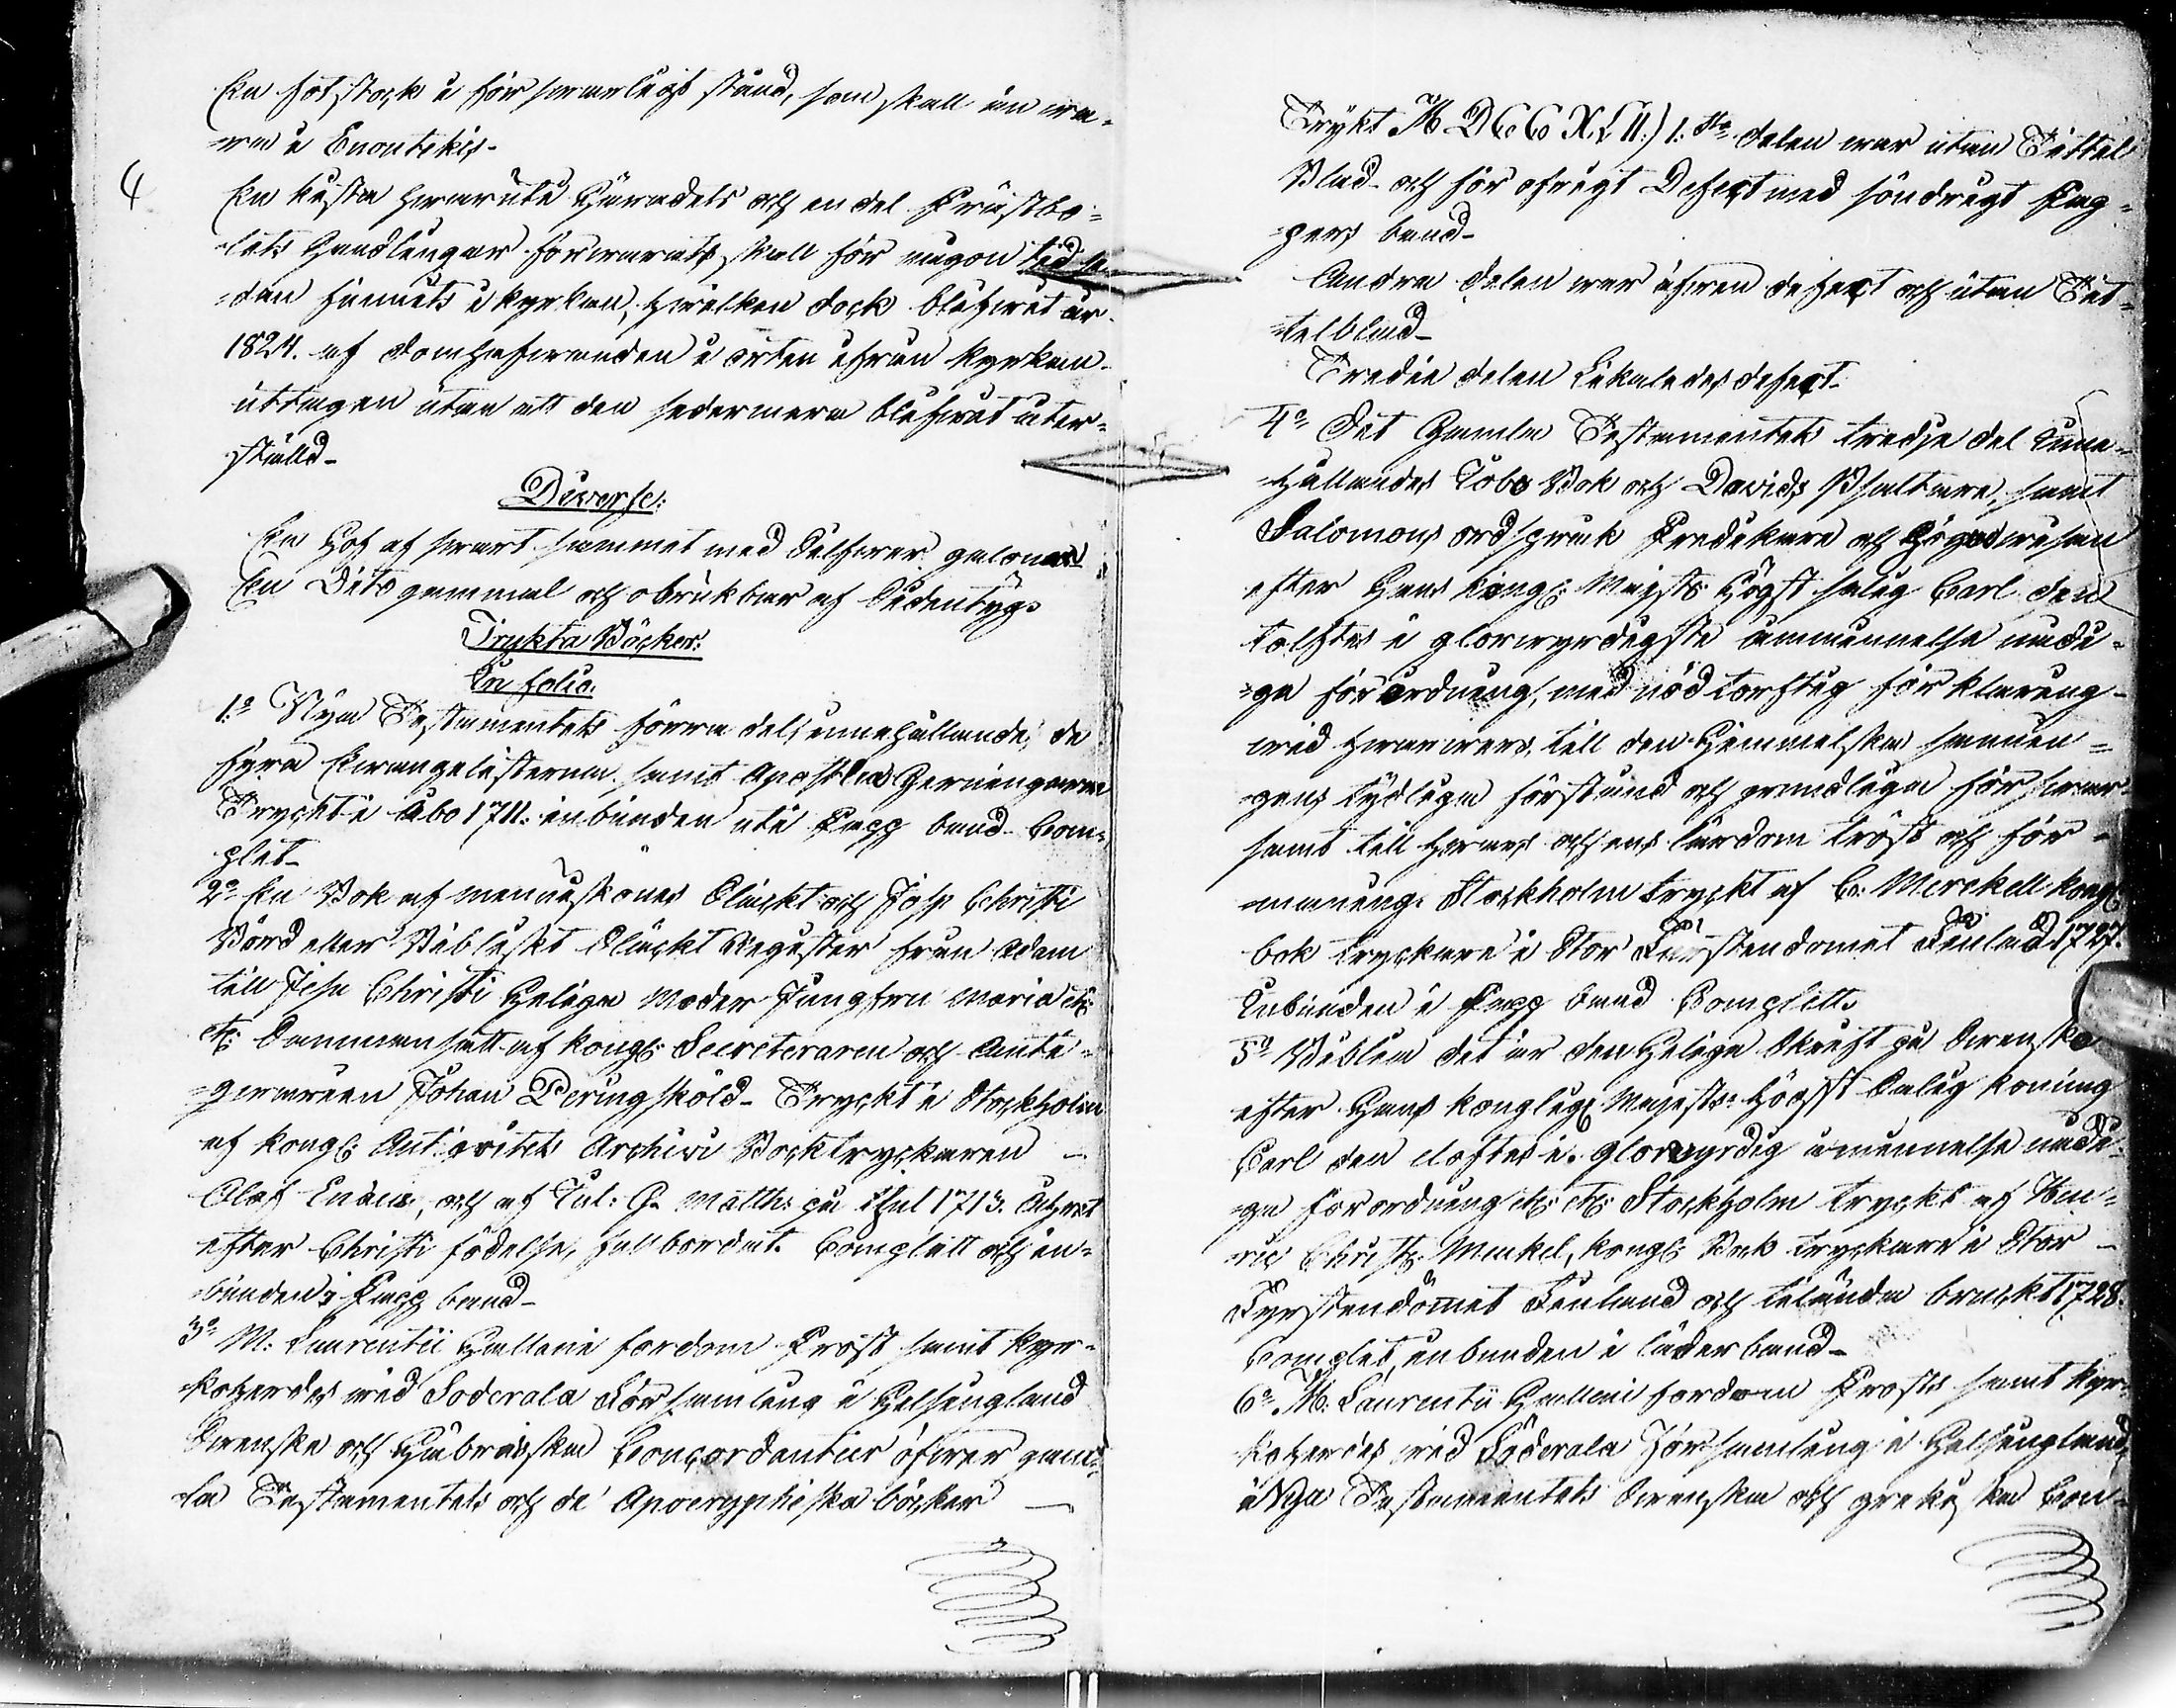 En fotstock i förswarligt stånd, som skall än wa-
ra i Enontekis-
4
En kista hwaruti Häradets och en del Prästbo-
lets Handlingar förwarats, skall för någon tid se-
dan funnits i kyrkan, hwilken dock blifwit år
1824. af domhafwanden i orten ifrån kyrkan
uttagen utan att den sedermera blifwit åter-
ställd-
Diverse:
En Håf af swart sammet med Silfwer galoner
En Dito gammal och obrukbar af Sidentyg.
Trykta Böcker:
In folio.
1:o Nya Testamentets förra del, innehållande de
fyra Ewangelisterna samt Apostla Gerningarna
Tryckt i Åbo 1711. inbunden uti Papp band. Com-
plet-
2:o En Bok af menniskones Slächt och Jesu Christi
Börd eller Bibliskt Slächt Register från Adam
till Jesu Christi Heliga Moder Jungfru Maria etc
etc. Sammansatt af Kongl: Secreteraren och Anti-
qvarien Johan Peringsköld- Tryckt i Stockholm
af Kongl: Antiqvitets Archivi Boktryckaren -
Olof Enæus, och af Jul: G. Matth: på 1713. Åhret
efter Christi födelse, fullbordat. Complett och in-
bunden i Papp band-
3:o M. Laurentii Halleni fordom Prost samt Kyr-
koherdes wid Söderala Församling i Helsingland
Swenska och Hebreiska Concordantier öfwer gam-
la Testamentets och de Apocryphiska böcker -
Trykt MDCCXLII.) 1:sta delen war utan Tittel
Blad- och för öfrigt Defect med söndrigt Pap-
pers band-
Andra delen war äfwen defect och utan Tit-
telblad-
Tredie delen Likaledes defect-
4:o Det Gamla Testamentets tredje del Inne-
hållandes Jobs Bok och Davids Psaltare, samt
Salomons ordspråk Predikare och Höga wisan
efter Hans Kongl: Majsts Högst salig Carl den
tolftes i glorwyrdigste åmminnelse nådi-
ga förordning, med nödtorftig förklaring
wid hwar wers, till den Himmelska sannin-
gens tydliga förstånd och grundliga förswar
samt till hwars och ens lärdom tröst och för-
maning. Stockholm tryckt af C. Merckell Kongl:
boktryckare i Stor Furstendömet Finland 1727.
Inbunden i Papp band Complett.
5:o Biblia det är den Heliga Skrift på Swenska
efter Hans Konglig Majests: Högst Salig Konung
Carl den eloftes i. glorwyrdig åminnelse nådi-
ga förordning etc: etc: Stockholm tryckt af Hen-
ric Christ: Merckel, Kongl: Boktryckare i Stor-
Fyrstendömet Finland och tillända brackt 1728.
Complet, inbunden i läder band-
6:o M. Laurentii Halleni fordom Prosts samt Kyr-
koherdes wid Söderala Församling i Helsingland
å Nya Testamentets Swenska och grekiska Con-